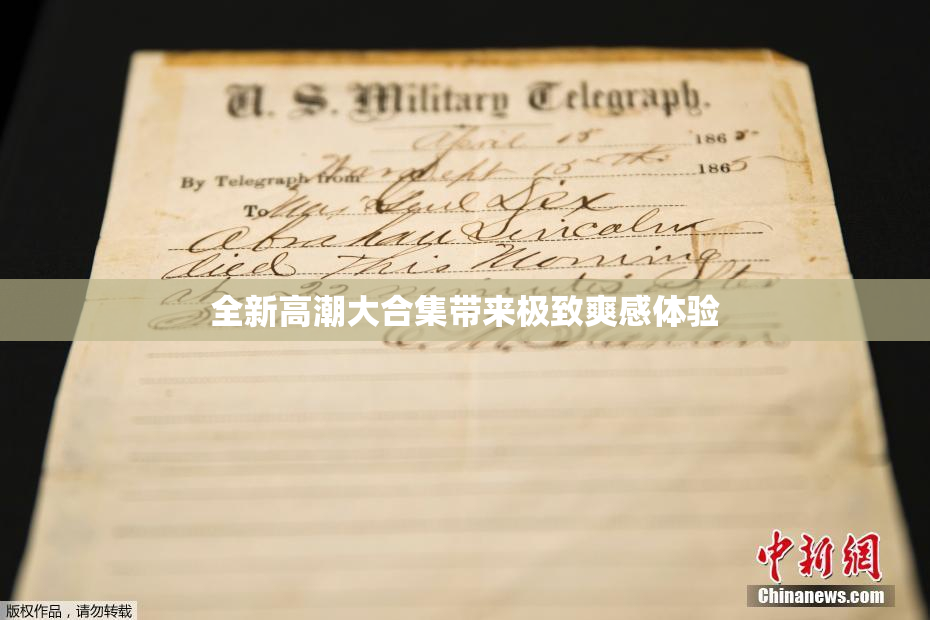 U. S. Military Telegraph.
April 15 1865
By Telegraph from War Dept 15th 1865
To Maj Genl Dix
Abraham Lincoln
died This Morning
at 22 minutes after
全新高潮大合集带来极致爽感体验
中新网
Chinanews.com
版权作品,请勿转载